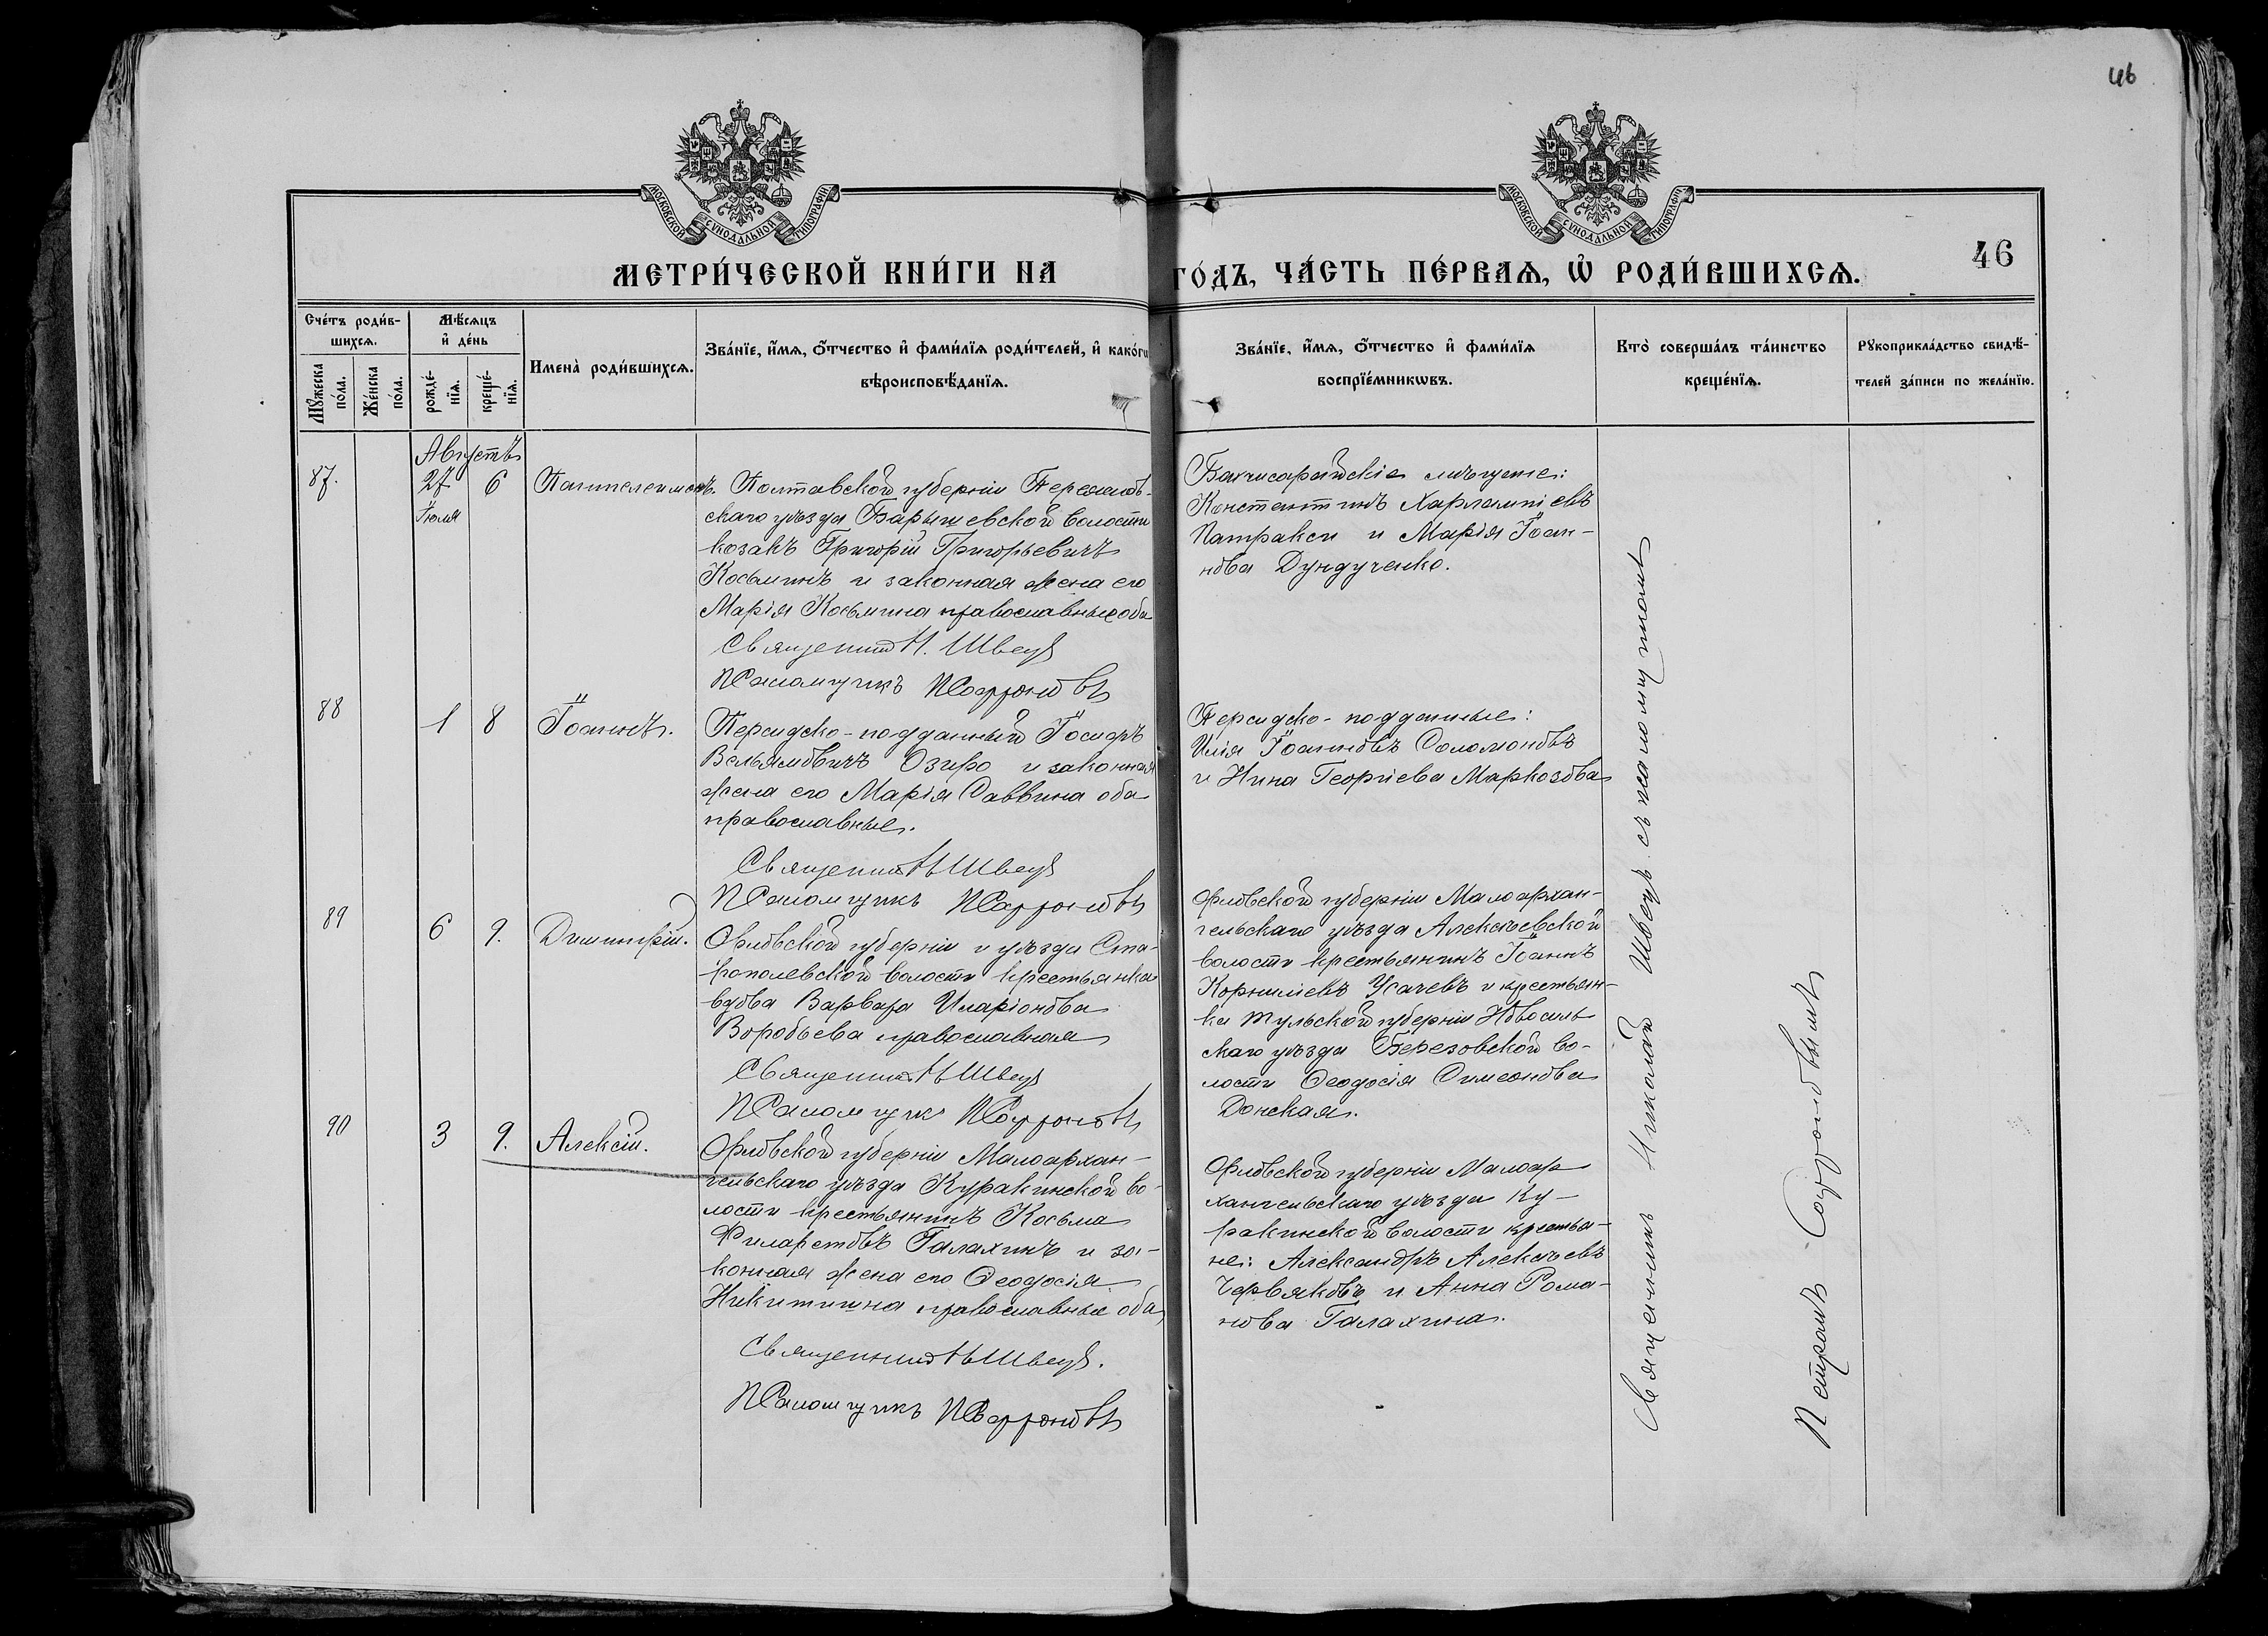 46
МОСКОВСКОЙ СУНОДАЛЬНОЙ ТИПОГРАФІИ
МОСКОВСКОЙ СУНОДАЛЬНОЙ ТИПОГРАФІИ
46
МЕТРИ́ЧЕСКОЙ КНИ́ГИ НА
ГО́ДЪ, ЧА́СТЬ ПЕ́РВАѦ, Ѽ РОДИ́ВШИХСѦ.
Сче́тъ роди́в-
шихсѧ.
Мѣ́сѧцъ
и҆ де́нь
Мꙋ́жеска
по́ла.
Же́нска
по́ла.
рожде́-
нїѧ.
креще́-
нїѧ.
Имена̀ роди́вшихсѧ.
Зва́нїе, и҆́мѧ, ѻ҆́тчество и҆ фами́лїѧ роди́телей, и҆ како́гѡ
вѣроисповѣ́данїѧ.
Зва́нїе, и҆́мѧ, ѻ҆́тчество и҆ фами́лїѧ
воспрїе́мникѡвъ.
Кто̀ соверша́лъ та́инство
креще́нїѧ.
Рꙋкоприкла́дство свидѣ́-
телей за́писи по жела́нїю.
Августъ
87.
27
Іюля
6
Пантелеимонъ.
Полтавской губерніи Переяслов-
скаго уѣзда Барышевской волости
козакъ Григорій Григорьевичъ
Косьминъ и законная жена его
Марія Косьмина православные оба
Священникъ Н. Швецъ
Псаломщикъ П Софроновъ
Бахчисарайскіе мѣщане:
Константинъ Харлампіевъ
Патракеи и Марія Іоан-
нова Дундученко.
88
1
8
Іоаннъ.
Персидско-подданный Іосифъ
Вельямовичъ Озиро и законная
жена его Марія Саввина оба
православные.
Священникъ Н Швецъ
Псаломщикъ П Софроновъ
Персидско-подданные:
Илія Іоанновъ Соломоновъ
и Нина Георгіева Маркозова
89
6
9.
Димитрій.
Орловской губерніи и уѣзда Ста-
рополевской волости крестьянка
вдова Варвара Иларіонова
Воробьева православная
Священникъ Н Швецъ
Псаломщикъ П Софроновъ
Орловской губерніи Малоархан-
гельскаго уѣзда Алексѣевской
волости крестьянинъ Іоаннъ
Корниліевъ Усачевъ и крестьян-
ка Тульской губерніи Новосиль-
скаго уѣзда Березовской во-
лости Ѳеодосія Симеонова
Донская.
90
3
9.
Алексій.
Орловской губерніи Малоархан-
гельскаго уѣзда Куракинской во-
лости крестьянинъ Косьма
Филаретовъ Галахинъ и за-
конная жена его Ѳеодосія
Никитишна православные оба
Священникъ Н Швецъ.
Псаломщикъ П Софроновъ
Орловской губерніи Малоар
хангельскаго уѣзда Ку-
ракинской волости крестья-
не: Александръ Алексѣевъ
Червяковъ и Анна Рома-
нова Галахина.
Священникъ Николай Швецъ съ псаломщикомъ
Петромъ Софроновымъ